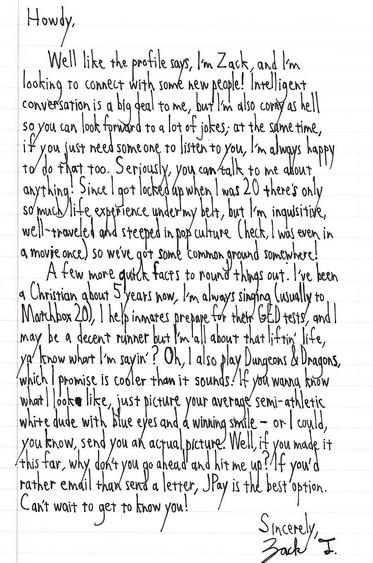 Howdy,
Well like the profile says, I'm Zack, and I'm
looking to connect with some new people! Intelligent
conversation is a big deal to me, but I'm also corny as hell
so you can look forward to a lot of jokes; at the same time,
if you just need someone to listen to you, I'm always happy
to do that too. Seriously, you can talk to me about
anything! Since I got locked up when I was 20 there's only
so much life experience under my belt, but I'm inquisitive,
well-traveled and steeped in pop culture (heck, I was even in
a movie once) so we've got some common ground somewhere!
A few more quick facts to round things out. I've been
a Christian about 5 years now, I'm always singing (usually to
Matchbox 20), I help inmates prepare for their GED tests, and I
may be a decent runner but I'm all about that liftin' life,
ya know what I'm sayin'? Oh, I also play Dungeons & Dragons,
which I promise is cooler than it sounds. If you wanna know
what I look like, just picture your average semi-athletic
white dude with blue eyes and a winning smile - or I could,
you know, send you an actual picture. Well, if you made it
this far, why don't you go ahead and hit me up? If you'd
rather email than send a letter, JPay is the best option.
Can't wait to get to know you!
Sincerely,
Zack J.